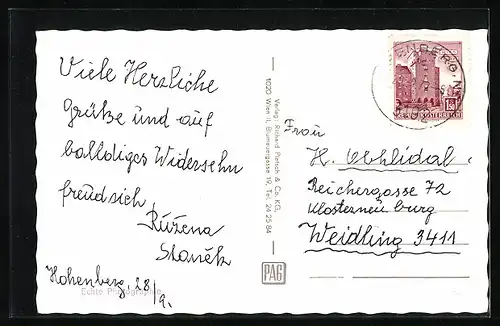 Viele Herzliche
Grütze und auf
balldiges Widersehn
freud sich
Růžena
Staněk
Hohenberg, 28/9.
Echte Photographie
Verlag: Richard Pietsch & Co. KG.
1020 Wien II, Blumauergasse 19, Tel. 24 25 84
PAG
ENBERG, N
REPUBLIK ÖSTERREICH
Frau
H.
Reichergasse 72
Klosterneuburg
Weidling 3411